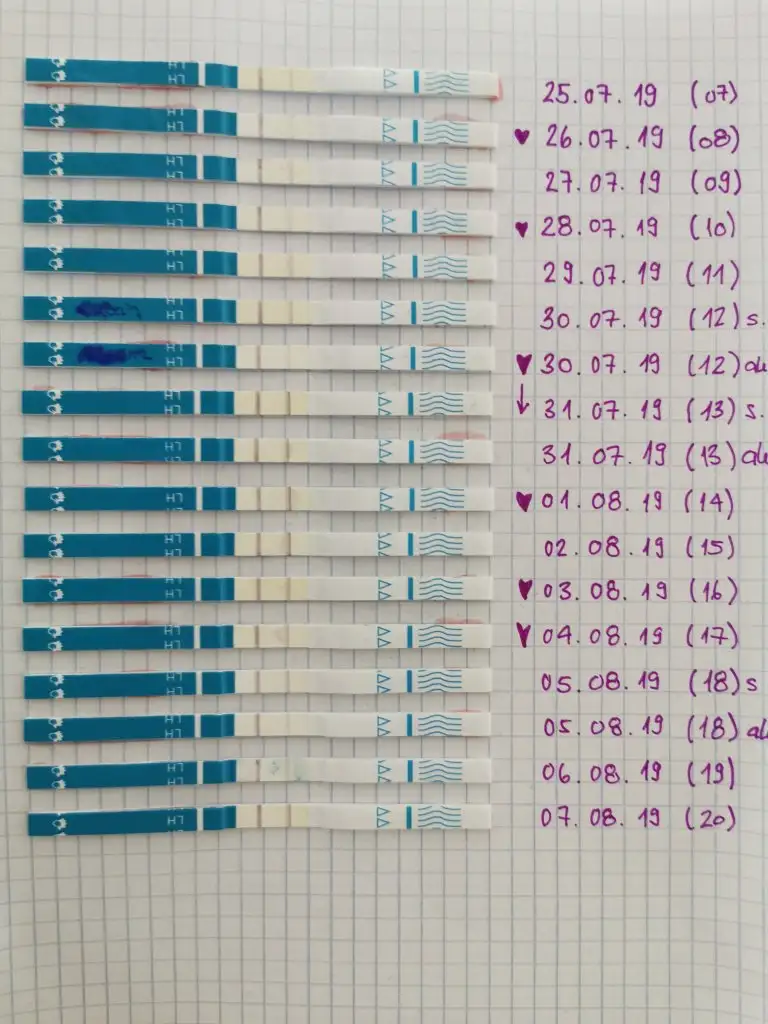 LH LH 25.07.19 (07)
LH LH ♥ 26.07.19 (08)
LH LH 27.07.19 (09)
LH LH ♥ 28.07.19 (10)
LH LH 29.07.19 (11)
LH LH 30.07.19 (12) s.
LH LH ♥ 30.07.19 (12)
LH LH ↓ 31.07.19 (13) s.
LH LH 31.07.19 (13)
LH LH ♥ 01.08.19 (14)
LH LH 02.08.19 (15)
LH LH ♥ 03.08.19 (16)
LH LH ♥ 04.08.19 (17)
LH LH 05.08.19 (18) s
LH LH 05.08.19 (18)
LH LH 06.08.19 (19)
LH LH 07.08.19 (20)